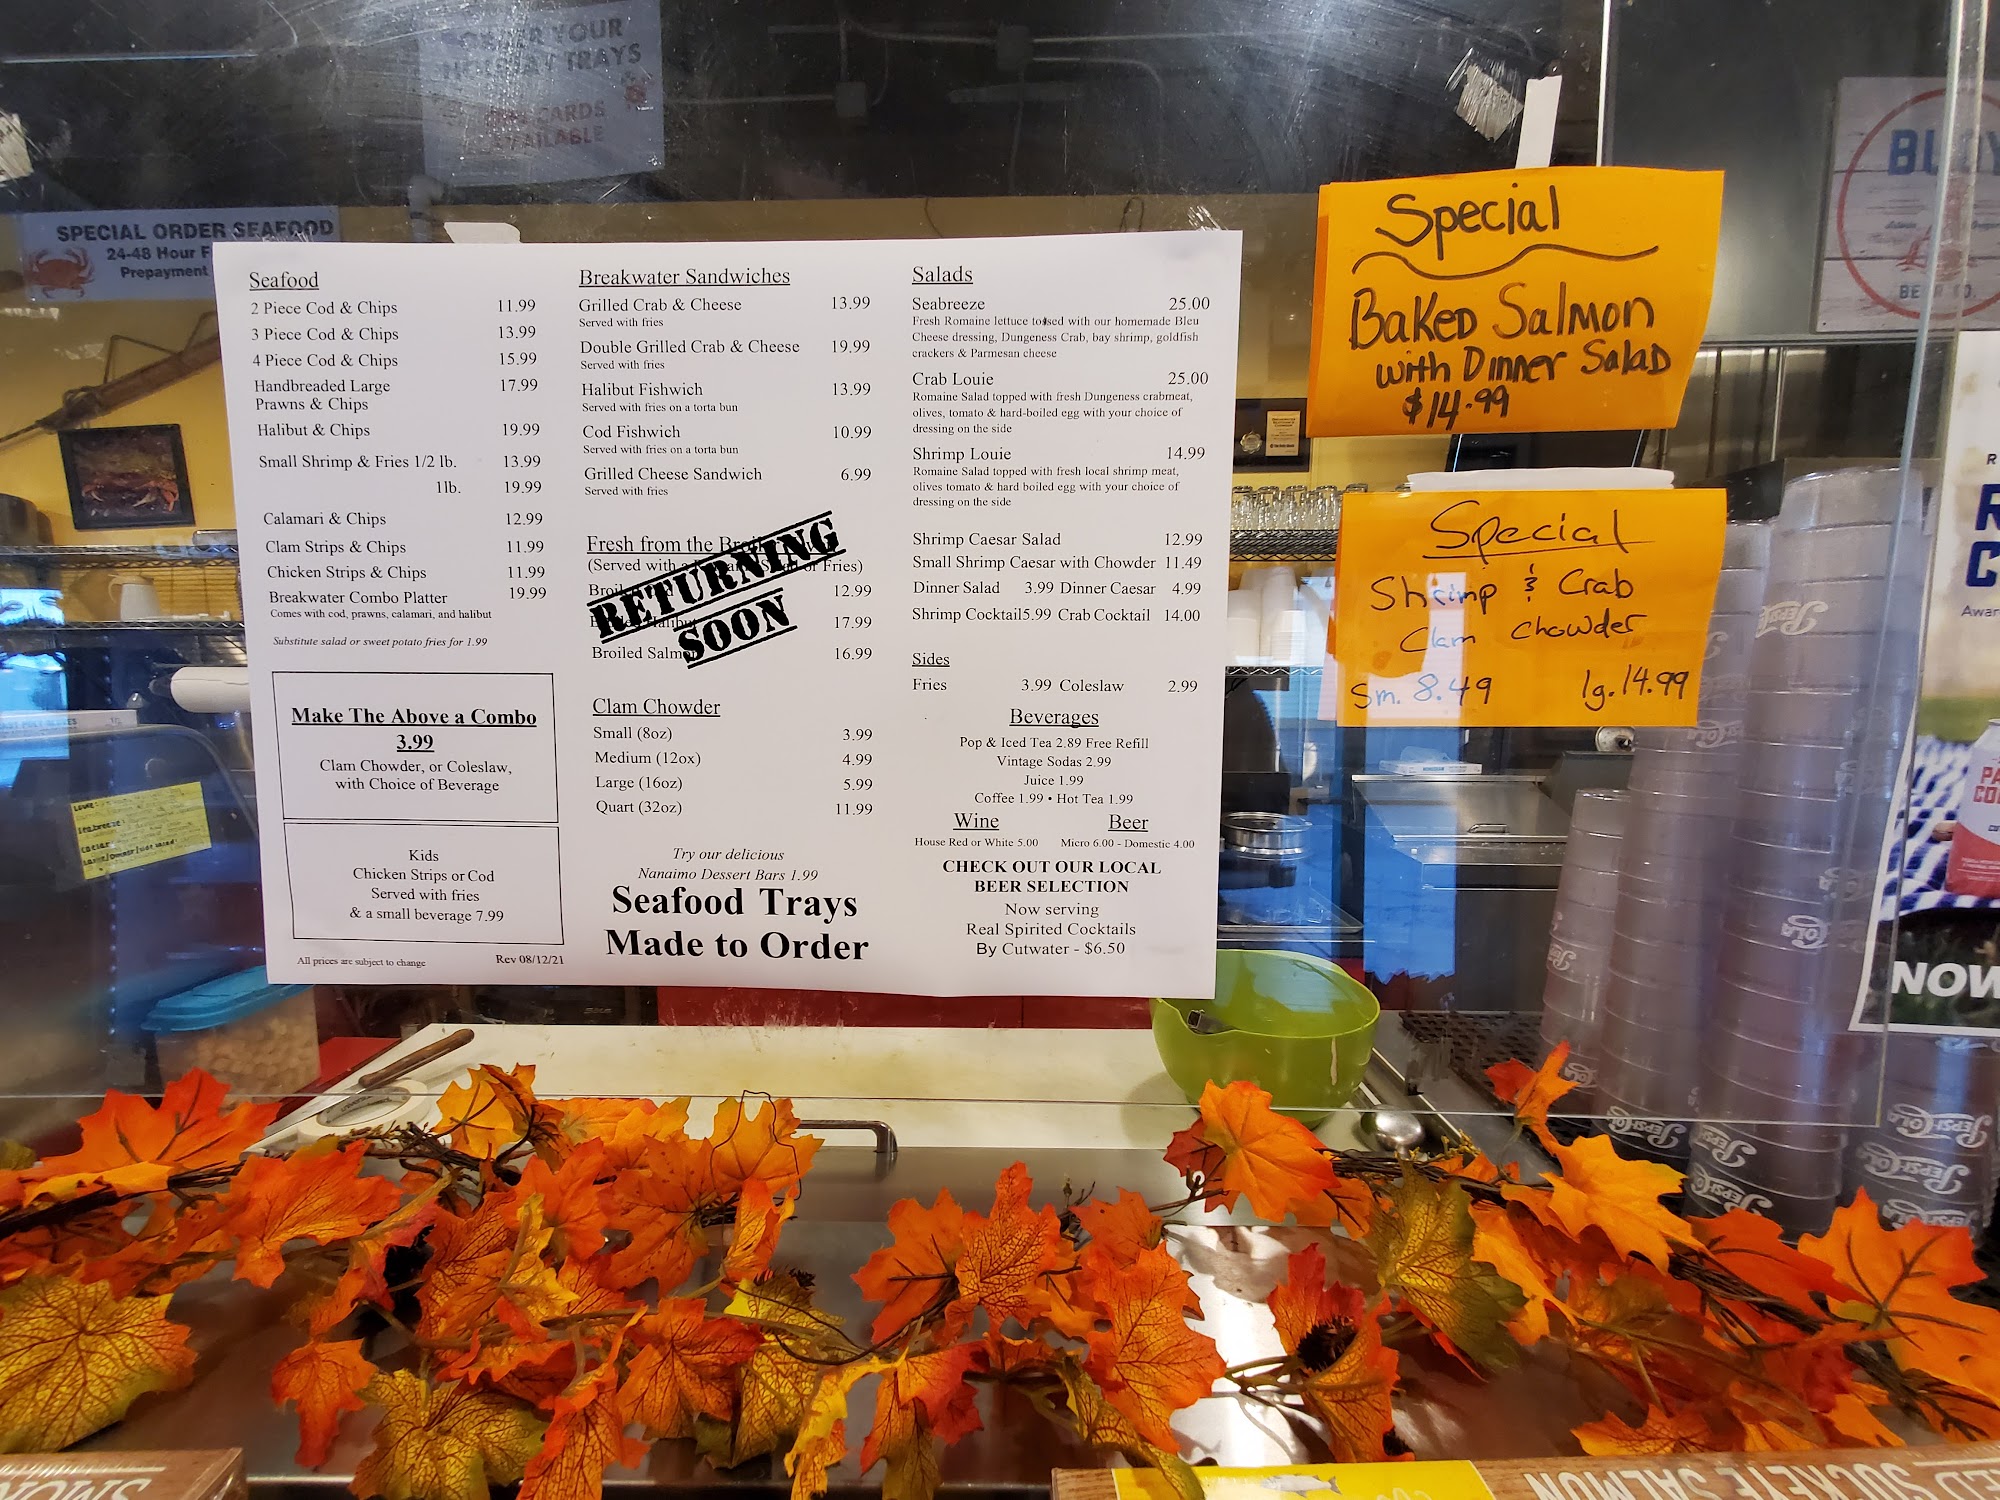 ORDER YOUR
HOLIDAY TRAYS
CARDS
AVAILABLE
SPECIAL ORDER SEAFOOD
24-48 Hour
Prepayment
Seafood
2 Piece Cod & Chips 11.99
3 Piece Cod & Chips 13.99
4 Piece Cod & Chips 15.99
Handbreaded Large 17.99
Prawns & Chips
Halibut & Chips 19.99
Small Shrimp & Fries 1/2 lb. 13.99
1lb. 19.99
Calamari & Chips 12.99
Clam Strips & Chips 11.99
Chicken Strips & Chips 11.99
Breakwater Combo Platter 19.99
Comes with cod, prawns, calamari, and halibut
Substitute salad or sweet potato fries for 1.99
Make The Above a Combo
3.99
Clam Chowder, or Coleslaw,
with Choice of Beverage
Kids
Chicken Strips or Cod
Served with fries
& a small beverage 7.99
All prices are subject to change Rev 08/12/21
Breakwater Sandwiches
Grilled Crab & Cheese 13.99
Served with fries
Double Grilled Crab & Cheese 19.99
Served with fries
Halibut Fishwich 13.99
Served with fries on a torta bun
Cod Fishwich 10.99
Served with fries on a torta bun
Grilled Cheese Sandwich 6.99
Served with fries
Fresh from the
(Served with or Fries)
12.99
Halibut 17.99
Broiled Salmon 16.99
RETURNING
SOON
Clam Chowder
Small (8oz) 3.99
Medium (12ox) 4.99
Large (16oz) 5.99
Quart (32oz) 11.99
Try our delicious
Nanaimo Dessert Bars 1.99
Seafood Trays
Made to Order
Salads
Seabreeze 25.00
Fresh Romaine lettuce tossed with our homemade Bleu
Cheese dressing, Dungeness Crab, bay shrimp, goldfish
crackers & Parmesan cheese
Crab Louie 25.00
Romaine Salad topped with fresh Dungeness crabmeat,
olives, tomato & hard-boiled egg with your choice of
dressing on the side
Shrimp Louie 14.99
Romaine Salad topped with fresh local shrimp meat,
olives tomato & hard boiled egg with your choice of
dressing on the side
Shrimp Caesar Salad 12.99
Small Shrimp Caesar with Chowder 11.49
Dinner Salad 3.99 Dinner Caesar 4.99
Shrimp Cocktail5.99 Crab Cocktail 14.00
Sides
Fries 3.99 Coleslaw 2.99
Beverages
Pop & Iced Tea 2.89 Free Refill
Vintage Sodas 2.99
Juice 1.99
Coffee 1.99 • Hot Tea 1.99
Wine Beer
House Red or White 5.00 Micro 6.00 - Domestic 4.00
CHECK OUT OUR LOCAL
BEER SELECTION
Now serving
Real Spirited Cocktails
By Cutwater - $6.50
Special
Baked Salmon
with Dinner Salad
$14.99
Special
Shrimp & Crab
Clam Chowder
Sm. 8.49 lg. 14.99
BUOY
BEER CO.
NOW
PEPSI-COLA
SOCKEYE SALMON